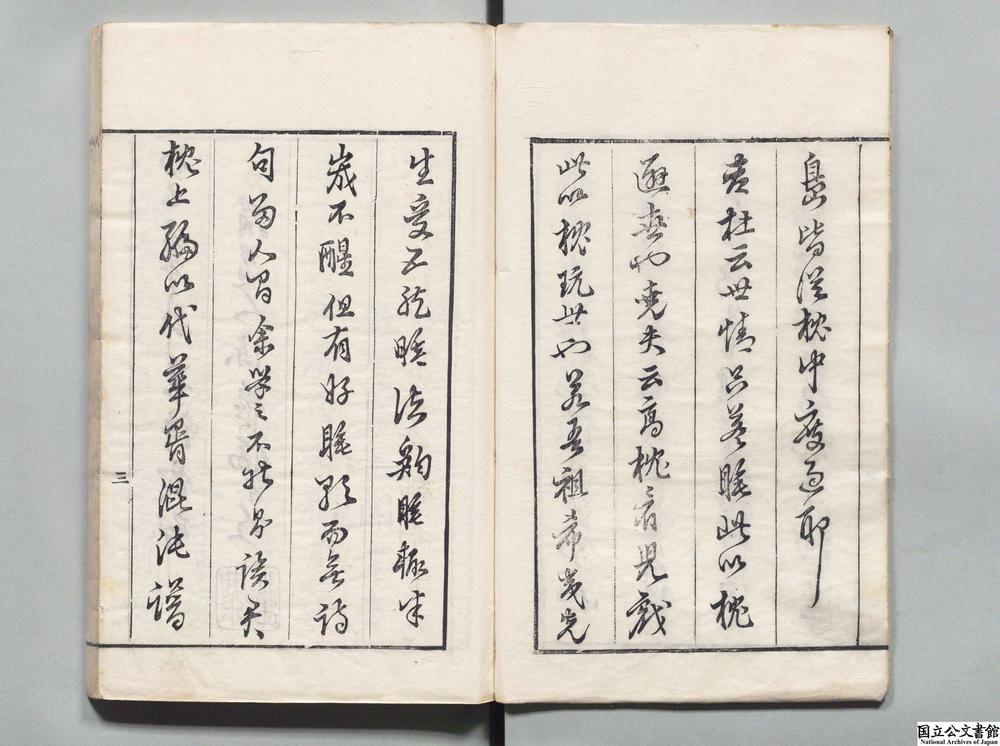 島皆從枕中度過耶
杜云世情只益睡此以枕
也堯夫云高枕看兒戲
此以枕玩世也若吾祖希夷先
生受五龍睡法鼾睡輒半
歲不醒但有好睡歌而無詩
句留人間余學之不能
枕上編以代華胥混沌譜
三
国立公文書館
National Archives of Japan